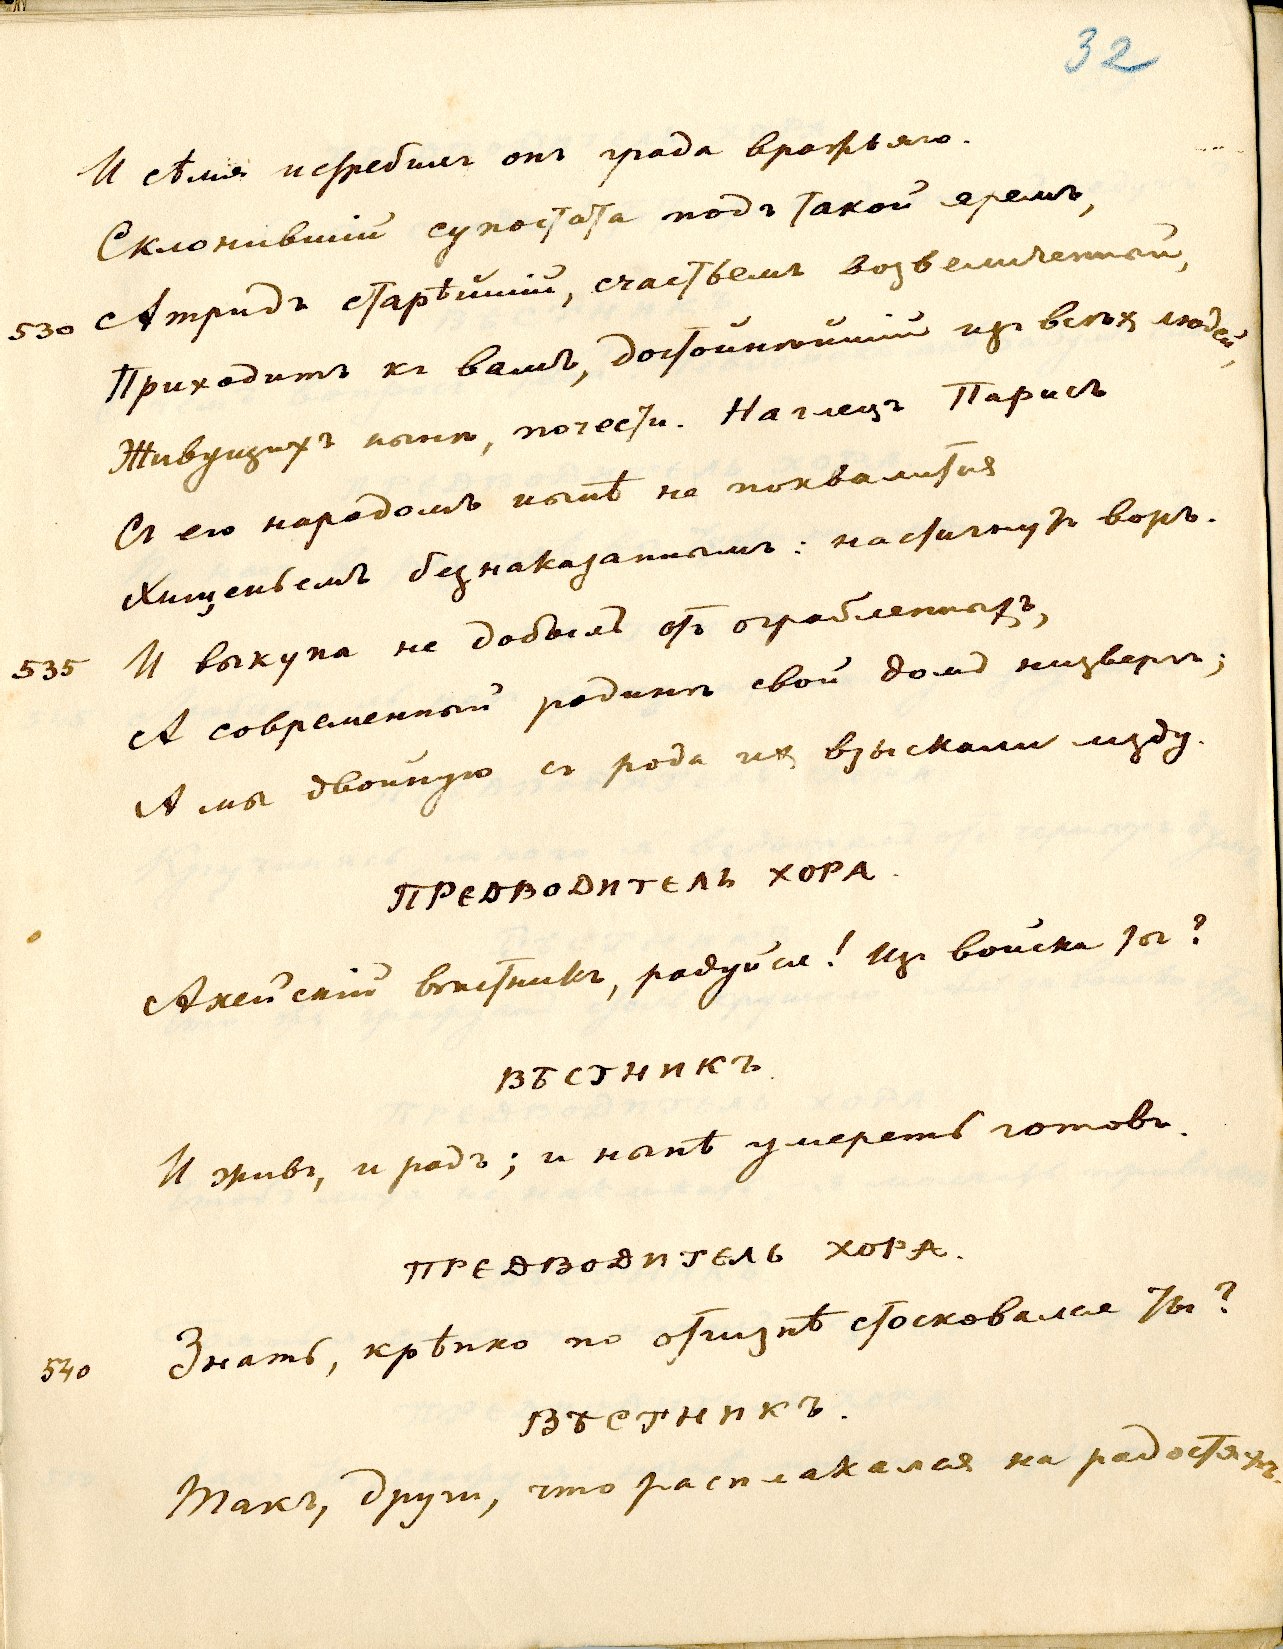 32
И сѣмя истребилъ онъ града вражьяго.
Склонившій супостата подъ такой яремъ,
530 Атридъ старѣйшій, счастьемъ возвеличенный,
Приходитъ къ вамъ, достойнѣйшій изъ всѣхъ людей,
Живущихъ нынѣ, почести. Наглецъ Парисъ
Съ его народомъ нынѣ не похвалится
Хищеньемъ безнаказаннымъ: настигнутъ воръ.
535 И выкупа не добылъ отъ ограбленныхъ,
А современный родинѣ свой домъ низвергъ;
А мы двойную съ рода их взыскали мзду.
ПРЕДВОДИТЕЛЬ ХОРА.
Ахейскій вѣстникъ, радуйся! Изъ войска ты?
ВѢСТНИКЪ.
И живъ, и радъ; и нынѣ умереть готовъ.
ПРЕДВОДИТЕЛЬ ХОРА.
540 Знать, крѣпко по отчизнѣ стосковался ты?
ВѢСТНИКЪ.
Такъ, други, что расплакался на радостяхъ.